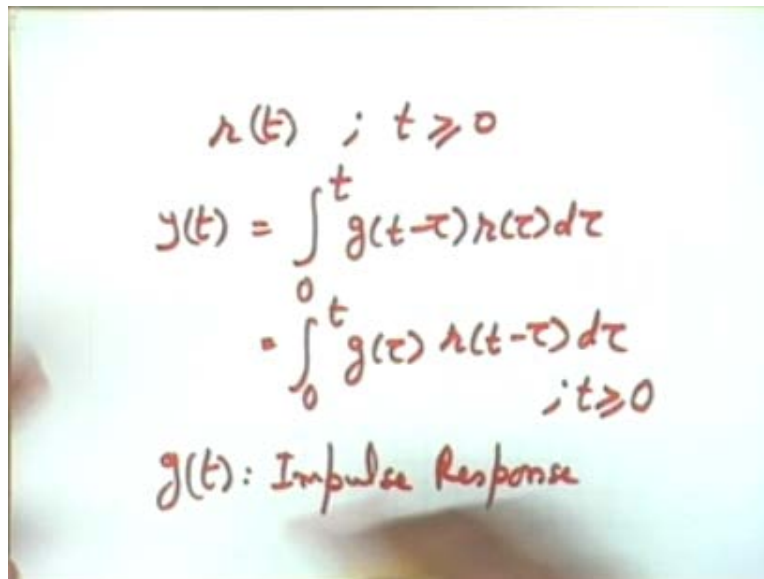 r(t) ; t ≥ 0
y(t) = ∫₀ᵗ g(t-τ) r(τ) dτ
= ∫₀ᵗ g(τ) r(t-τ) dτ
; t ≥ 0
g(t): Impulse Response